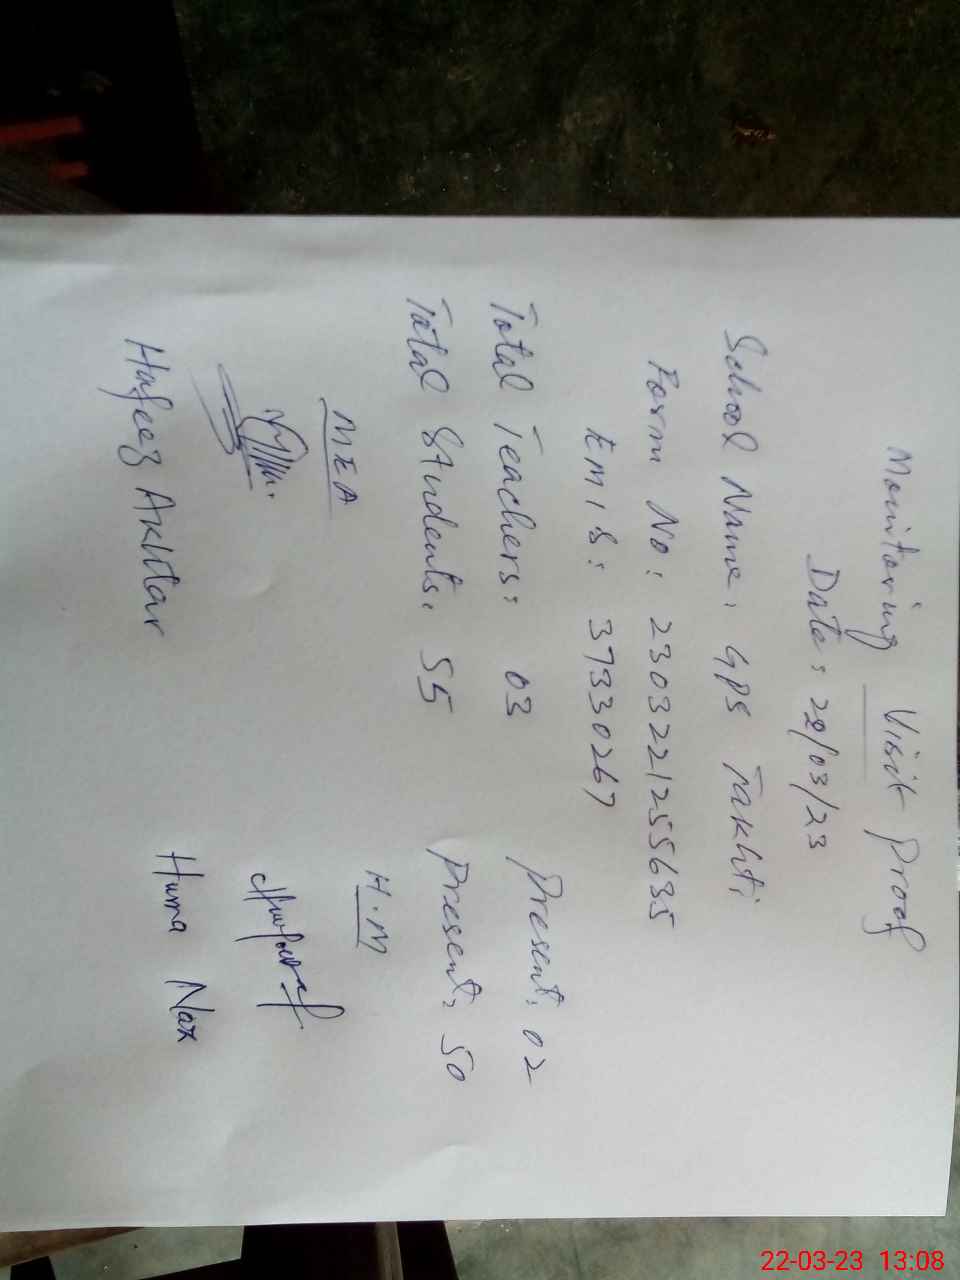 Monitoring Visit Proof
Date: 22/03/23
School Name: GPS Takhti
Form No: 2303221255635
EMIS: 37330267
Total Teachers: 03 Present: 02
Total Students: 55 Present: 50
MEA H.M
Hafeez Akhtar Huma Naz
22-03-23 13:08